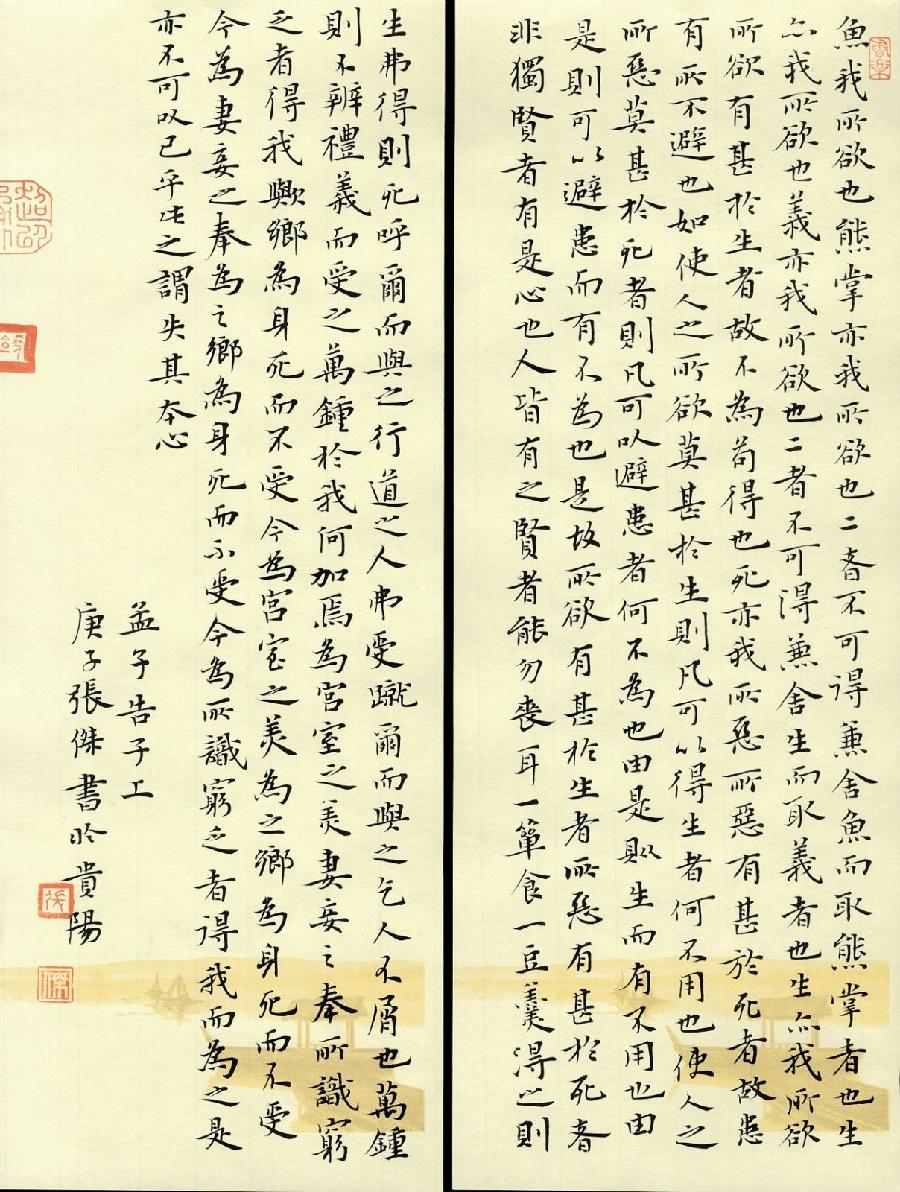 魚我所欲也熊掌亦我所欲也二者不可得兼舍魚而取熊掌者也生
亦我所欲也義亦我所欲也二者不可得兼舍生而取義者也生亦我所欲
所欲有甚於生者故不為苟得也死亦我所惡所惡有甚於死者故患
有所不避也如使人之所欲莫甚於生則凡可以得生者何不用也使人之
所惡莫甚於死者則凡可以避患者何不為也由是則生而有不用也由
是則可以避患而有不為也是故所欲有甚於生者所惡有甚於死者
非獨賢者有是心也人皆有之賢者能勿喪耳一簞食一豆羹得之則
生弗得則死呼爾而與之行道之人弗受蹴爾而與之乞人不屑也萬鍾
則不辨禮義而受之萬鍾於我何加焉為宮室之美妻妾之奉所識窮
乏者得我歟鄉為身死而不受今為宮室之美為之鄉為身死而不受
今為妻妾之奉為之鄉為身死而不受今為所識窮乏者得我而為之是
亦不可以已乎此之謂失其本心
孟子告子上
庚子張傑書於貴陽